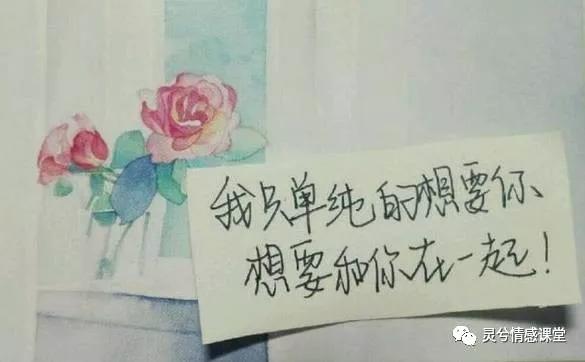 我只单纯的想要你
想要和你在一起！
灵兮情感课堂